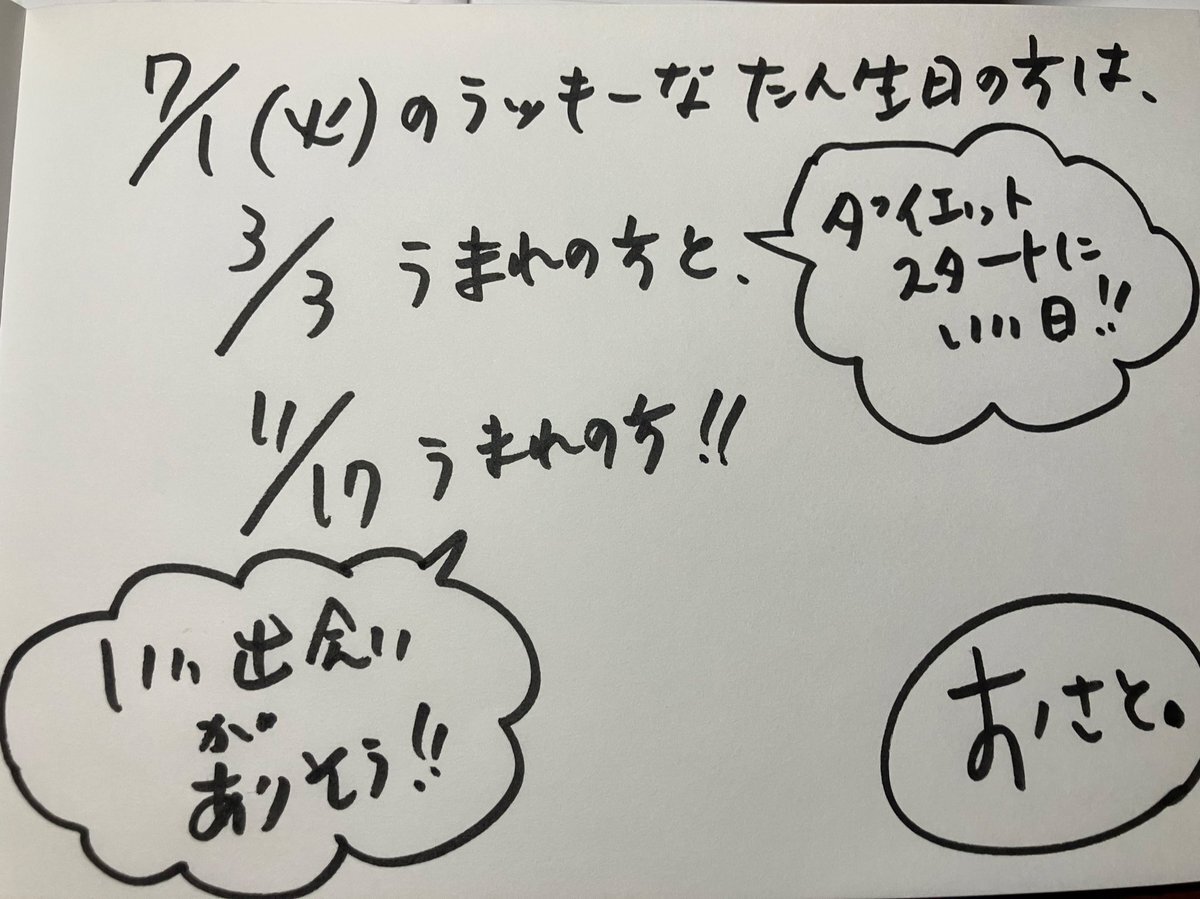 7/1(火)のラッキーなたん生日の方は、
3/3 うまれの方と、
ダイエット
スタートに
いい日!!
11/17 うまれの方!!
いい出会い
が
ありそう!!
おさと。